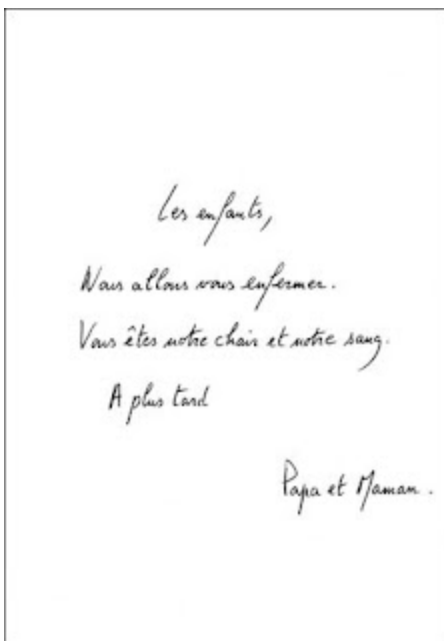 Les enfants,
Nous allons vous enfermer.
Vous êtes notre chair et notre sang.
A plus tard
Papa et Maman.